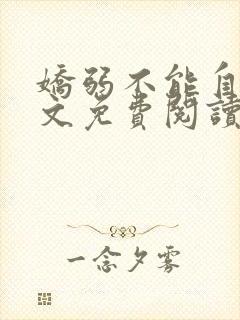 嬌弱不能自
文免費閱讀
一念夕雾